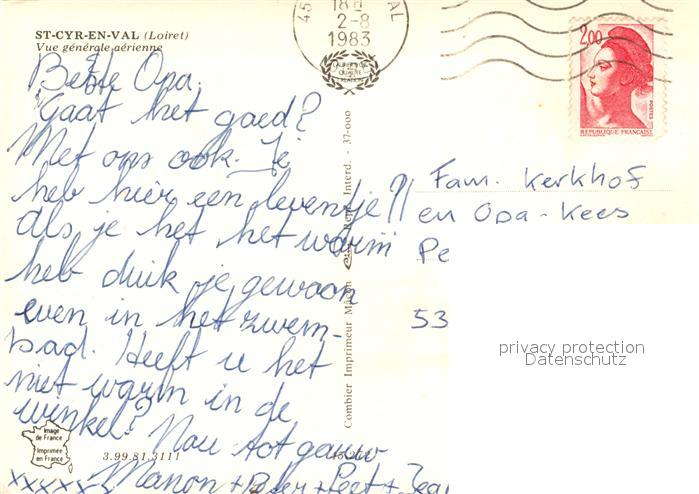 ST-CYR-EN-VAL (Loiret)
Vue générale aérienne
Beste Opa.
Gaat het goed?
Met ons ook. Je
heb hier een leventje!!
Als je het het warm
heb duik je gewoon
even in het zwem-
bad. Heeft u het
niet warm in de
winkel?
Nou tot gauw
xxxxxx Manon + Peter + Peet +
45
18 H
2-8
1983
AL
2,00
POSTES
REPUBLIQUE FRANÇAISE
Fam. Kerkhof
en Opa-Kees
Pe
53
privacy protection
Datenschutz
Combier Imprimeur Mâcon
Rep. Interd. - 37-000
Image
de France
Imprimée
en France
3.99.81.3111